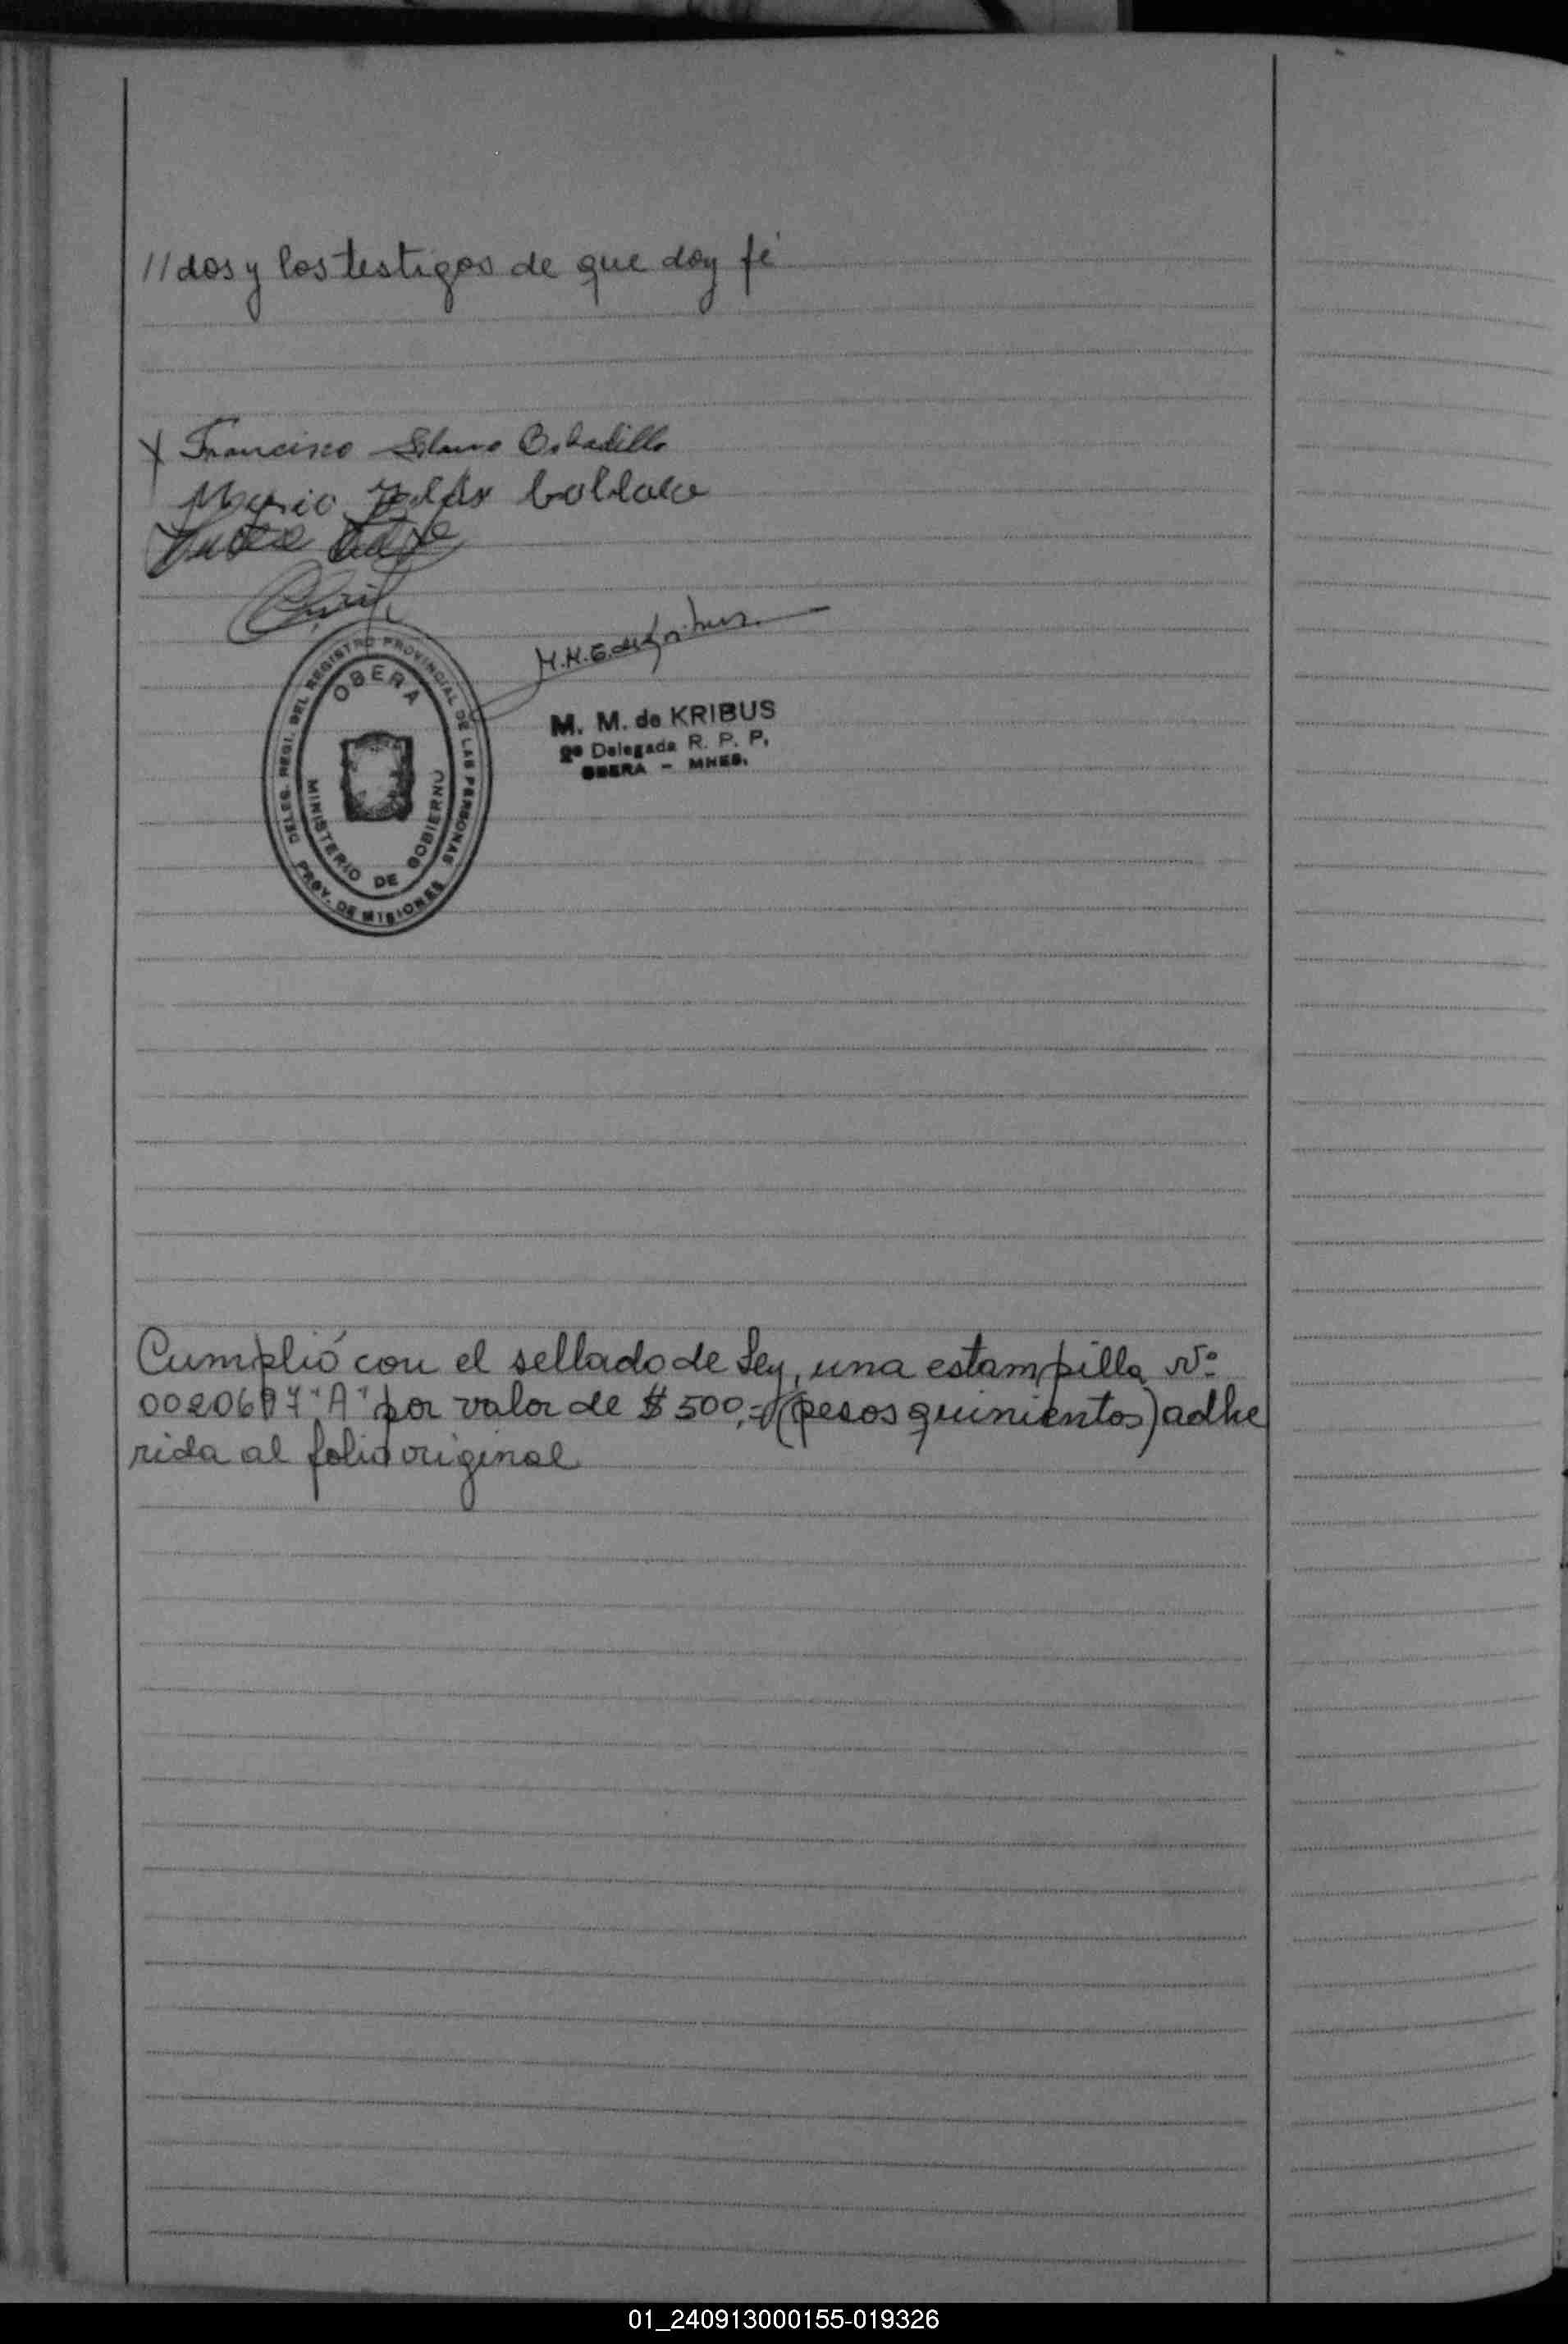 //dos y los testigos de que doy fé
x Francisco Solano Bobadilla
M.M.G. de Kribus.
DELEG. REGI. DEL REGISTRO PROVINCIAL DE LAS PERSONAS
OBERA
MINISTERIO DE GOBIERNO
PROV. DE MISIONES
M. M. de KRIBUS
2º Delegada R. P. P.
OBERA - MNES.
Cumplió con el sellado de Ley, una estampilla Nº
"A" por valor de $ 500,= (pesos quinientos) adhe
rida al folio original
01_240913000155-019326